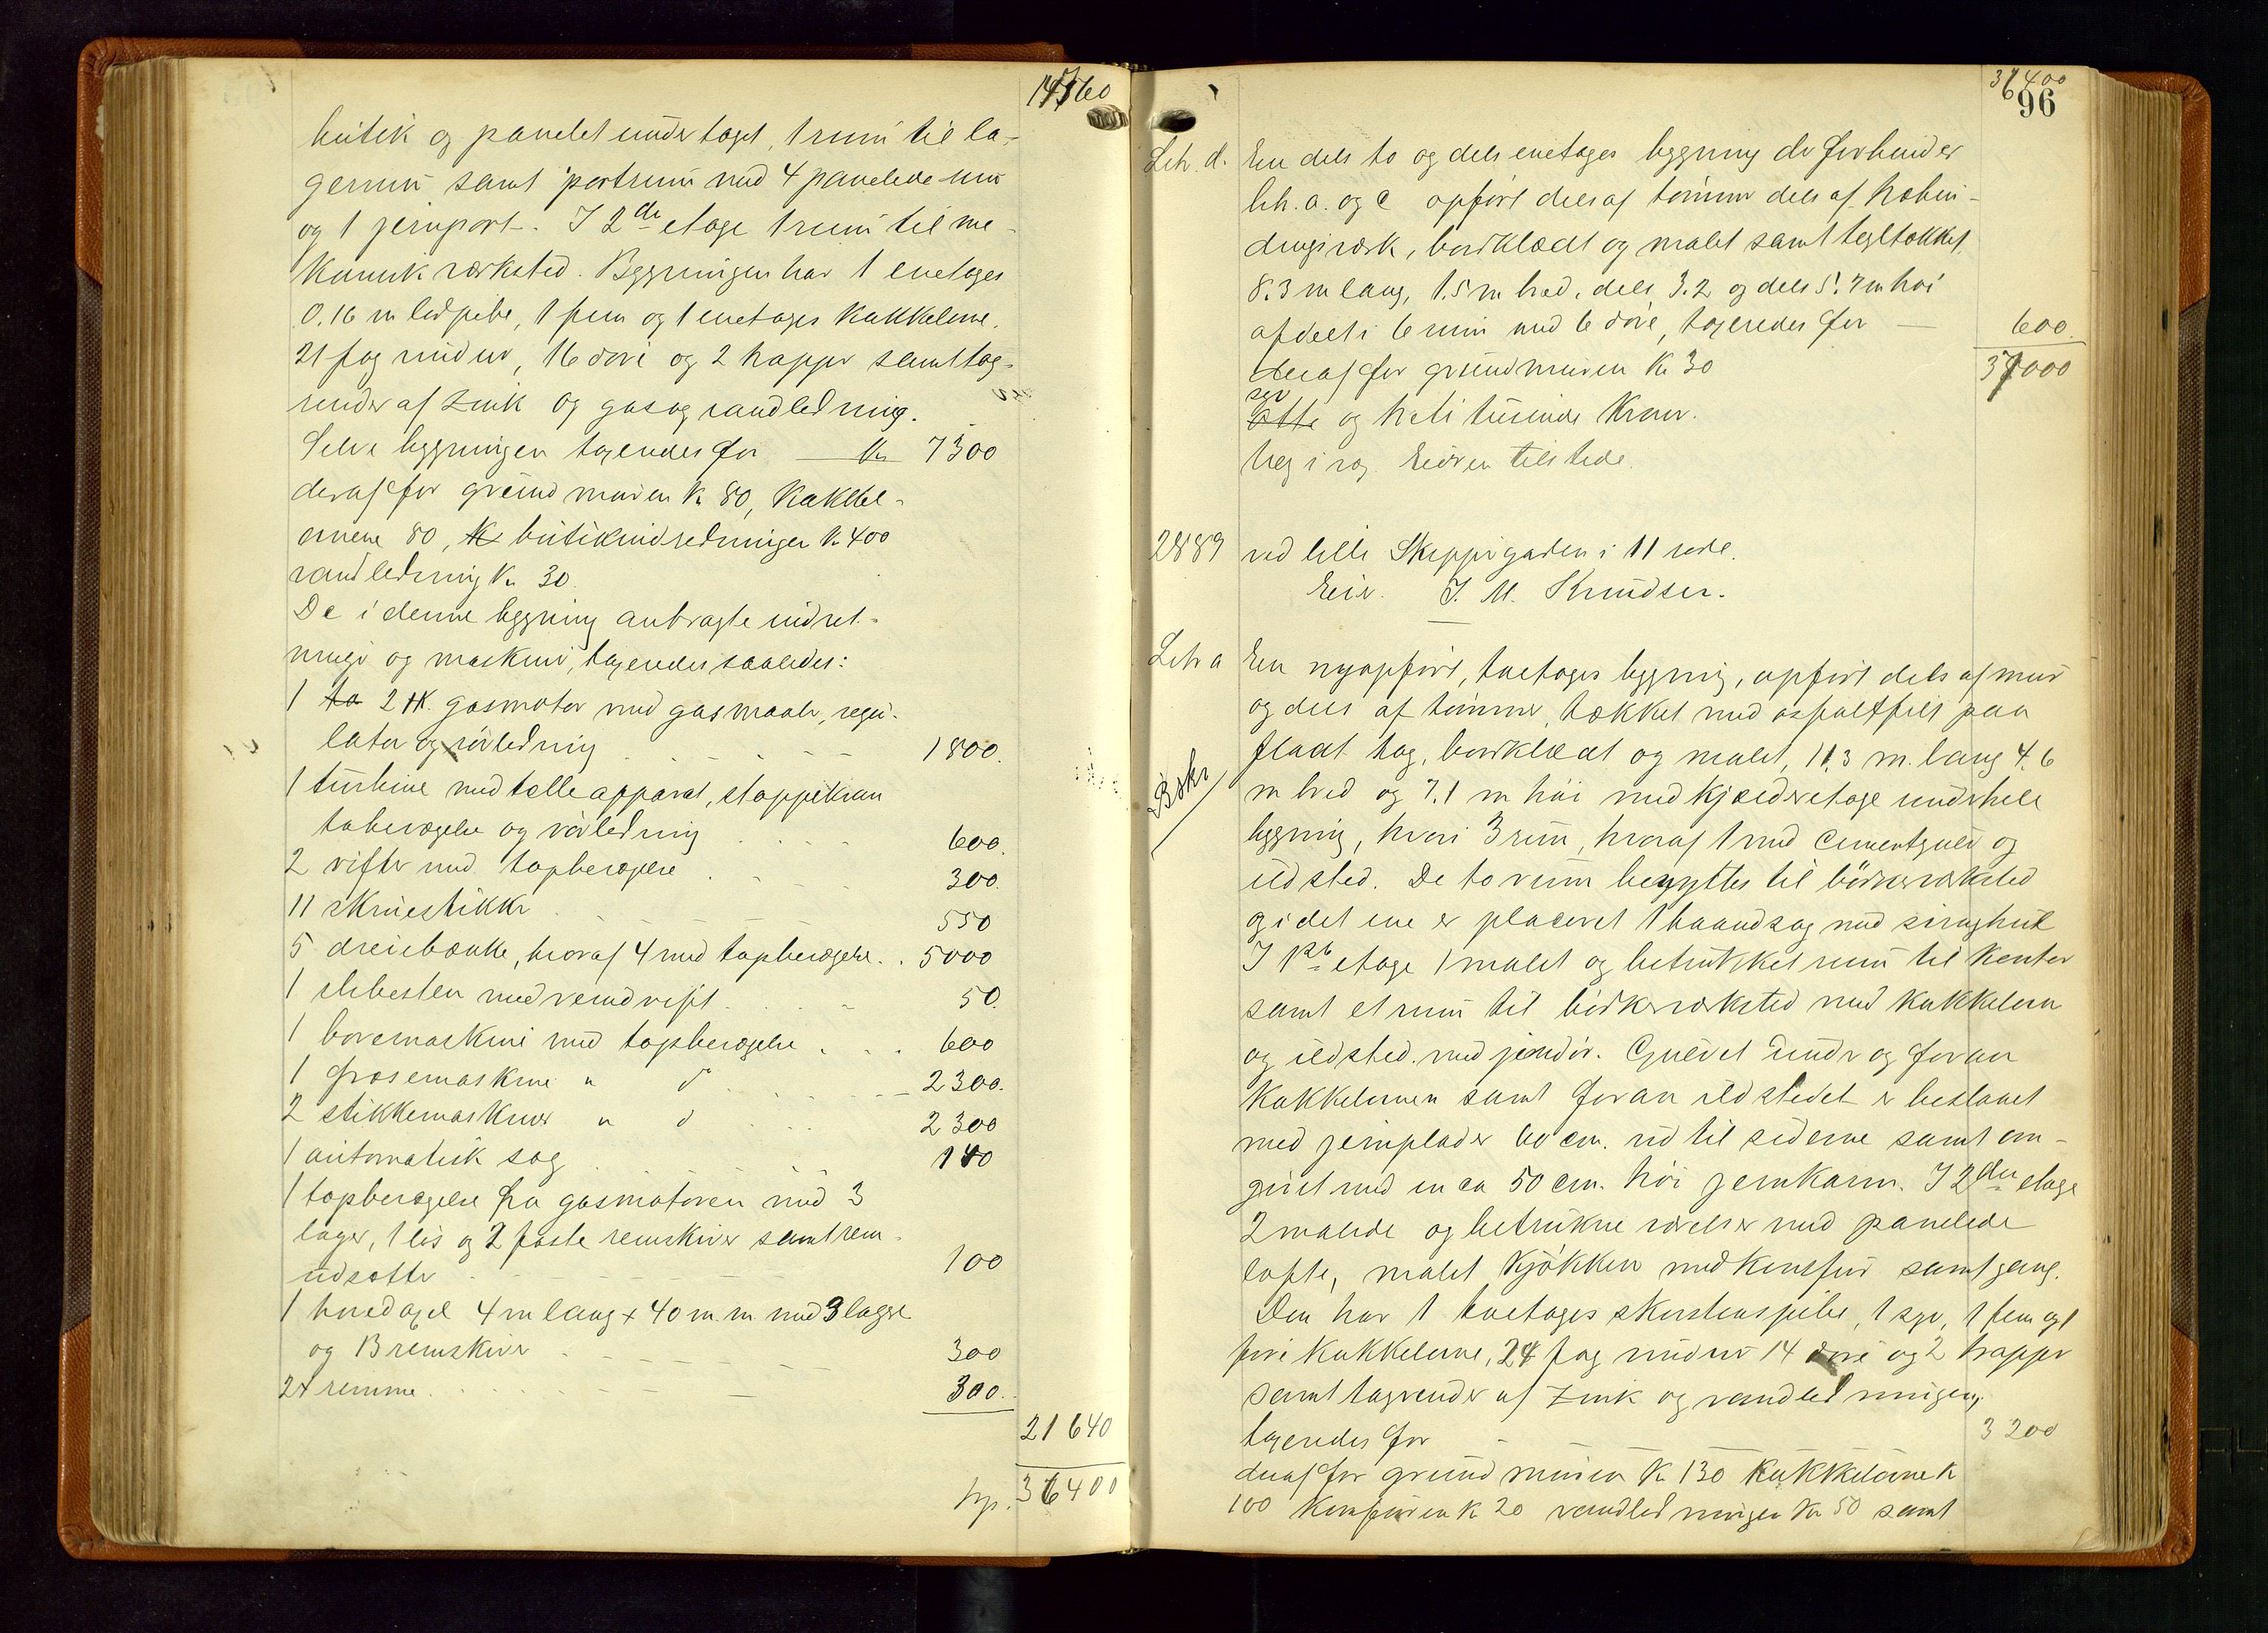 14760
butik og panelet under taget, 1 rum til la-
gerrum samt portrum med 4 panelede mure
og 1 jernport. I 2de etage 1 rum til me-
kanisk værksted. Bygningen har 1 enetages
0.16 m lød pibe, 1 fem og 1 enetages kakkelovne.
21 fag vinduer, 16 døre og 2 trapper samt tag-
render af zink og gas og vandledning.
Selve bygningen taxeredes for — Kr 7300
deraf for grundmuren Kr 80, kakkel-
ovnene 80, butikindredningen Kr 400
vandledning Kr 30.
De i denne bygning anbragte indret-
ninger og maskiner, taxeredes saaledes:
1 2 HK. gasmotor med gasmaaler, regu-
lator og rørledning 1800.
1 turbine med tælleapparat, stoppekran
taxberægelse og rørledning 600.
2 vifter med topberægelse 300.
11 skruestikker 550
5 dreiebænke, hvoraf 4 med topberægelse 5000
1 slibesten med remdrift 50.
1 boremaskine med topberægelse 600
1 fræsemaskine " do 2300.
2 stikkemaskiner " do 2300
1 automatisk sag 140
1 topberægelse fra gasmotoren med 3
lager, 1 løs og 2 faste remskiver samt rem-
udsætter 100
1 hovedaxel 4 m lang × 40 m.m med 3 lagere
og 13 remskiver 300
24 remme 300.
21640
trp. 36400
36400
96
Litr. d. En dels to og dels enetages bygning der forbinder
litr. a. og c opført dels af tømmer dels af træbin-
dingsværk, bordklædt og malet samt tegltækket.
8.3 m lang, 1.5 m bred, dels 3.2 og dels 5.7 m høi
afdelt i 6 rum med 6 døre, taxeredes for — 600.
deraf for grundmuren Kr 30 37000
syv
otte og treti tusinde Kroner.
Veg i rog. Eieren tilstede.
2889 ved lille Skippergaden i 11 rode.
Eier. J. M. Knudsen.
Litr a En nyopført, toetages bygning, opført dels af mur
og dels af tømmer, tækket med asfaltfilt paa
fladt tag, bordklædt og malet, 11.3 m. lang 4.6
m bred og 7.1 m høi med kjælderetage under hele
Bøkr
bygning, hvori 3 rum, hvoraf 1 med cementgulv og
ildsted. De to rum benyttes til bødkerværksted
og i det ene er placeret 1 baandsag med svinghjul
I 1ste etage 1 malet og betrukket rum til kontor
samt et rum til bødkerværksted med kakkelovn
og ildsted med jerndør. Gulvet under og foran
kakkelovnen samt foran ildstedet er beslaaet
med jernplader 60 cm. ud til siderne samt om-
givet med en ca 50 cm. høi jernkarm. I 2den etage
2 malede og betrukne værelser med panelede
lofte, malet kjøkken med komfur samt gang.
Den har 1 toetages skorstenspibe, 1 syv, 1 fem og 1
fire kakkelovne, 24 fag vinduer 14 døre og 2 trapper
samt tagrender af zink og vandledningen,
taxeredes for 3200
deraf for grundmuren Kr 130 kakkelovne K
100 Komfuren K 20 vandledningen Kr 50 samt